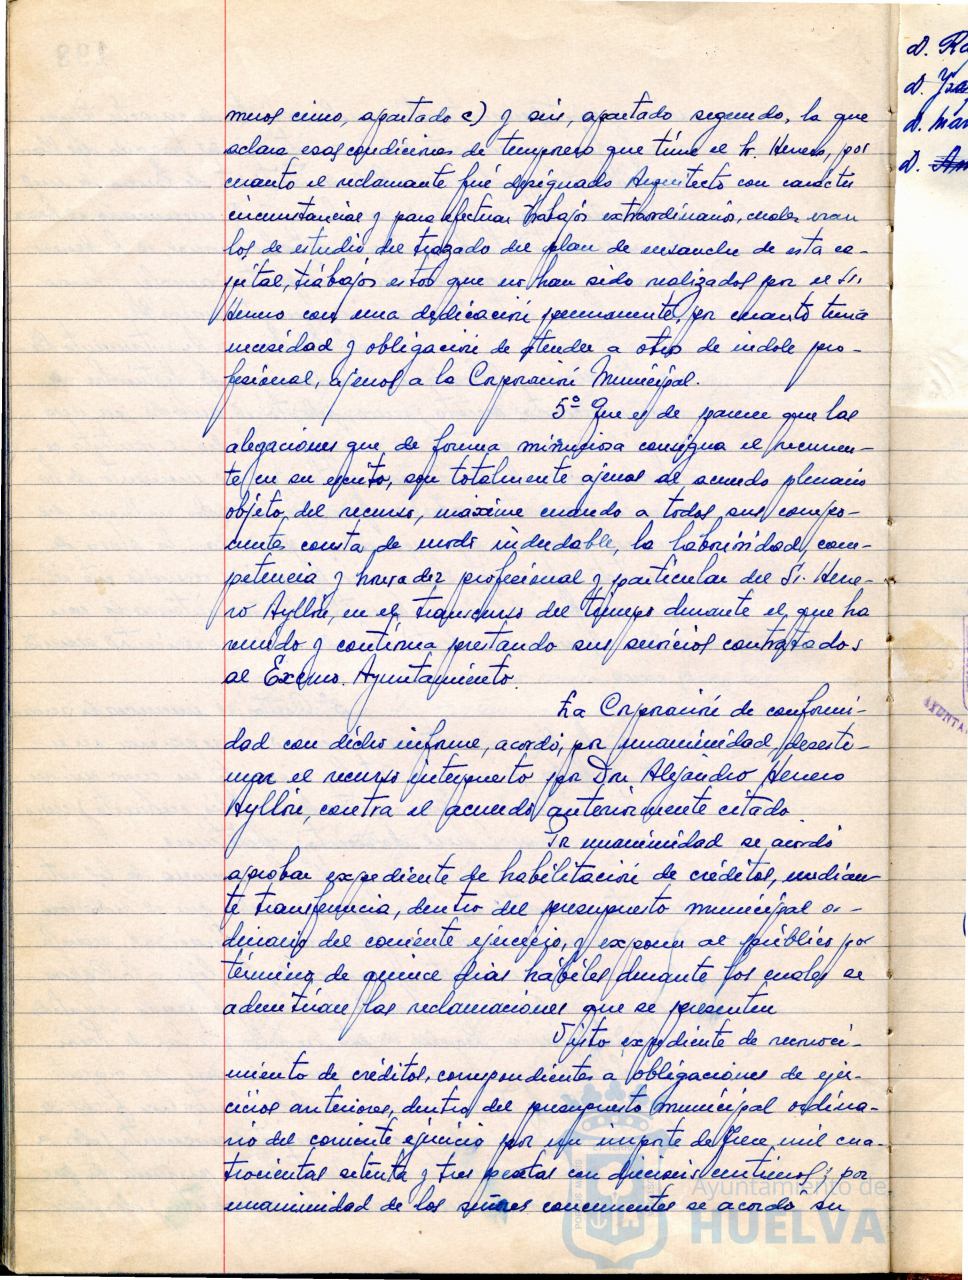 meros cinco, apartado c) y seis, apartado segundo, la que
aclara esas condiciones de temporero que tiene el Sr. Herrero, por
cuanto el reclamante fué designado Arquitecto con carácter
circunstancial y para efectuar trabajos extraordinarios, cuales eran
los de estudio del trazado del plan de ensanche de esta ca-
pital, trabajos estos que no han sido realizados por el Sr.
Herrero con una dedicación permanente, por cuanto tenía
necesidad y obligación de atender a otros de indole pro-
fesional, ajenos a la Corporación Municipal.
5º Que es de parecer que las
alegaciones que de forma minuciosa consigna el recurren-
te en su escrito, son totalmente ajenas al acuerdo plenario
objeto del recurso, máxime cuando a todos sus compo-
nentes consta de modo indudable, la laboriosidad, com-
petencia y honradez profesional y particular del Sr. Herre-
ro Ayllón, en el transcurso del tiempo durante el que ha
venido y continua prestando sus servicios contratados
al Excmo. Ayuntamiento.
La Corporación de conformi-
dad con dicho informe, acordó, por unanimidad, desesti-
mar el recurso interpuesto por Don Alejandro Herrero
Ayllón, contra el acuerdo anteriormente citado.
Por unanimidad se acordó
aprobar expediente de habilitación de créditos, median-
te transferencia, dentro del presupuesto municipal or-
dinario del corriente ejercicio, y exponer al público por
término de quince dias hábiles durante los cuales se
admitirian las reclamaciones que se presenten
Visto expediente de reconoci-
miento de créditos, correspondientes a obligaciones de ejer-
cicios anteriores, dentro del presupuesto municipal ordina-
rio del corriente ejercicio por un importe de trece mil cua-
trocientas setenta y tres pesetas con dieciseis centimos, por
unanimidad de los señores concurrentes se acordó su
D.
D.
D.
D.
Ayuntamiento de
HUELVA